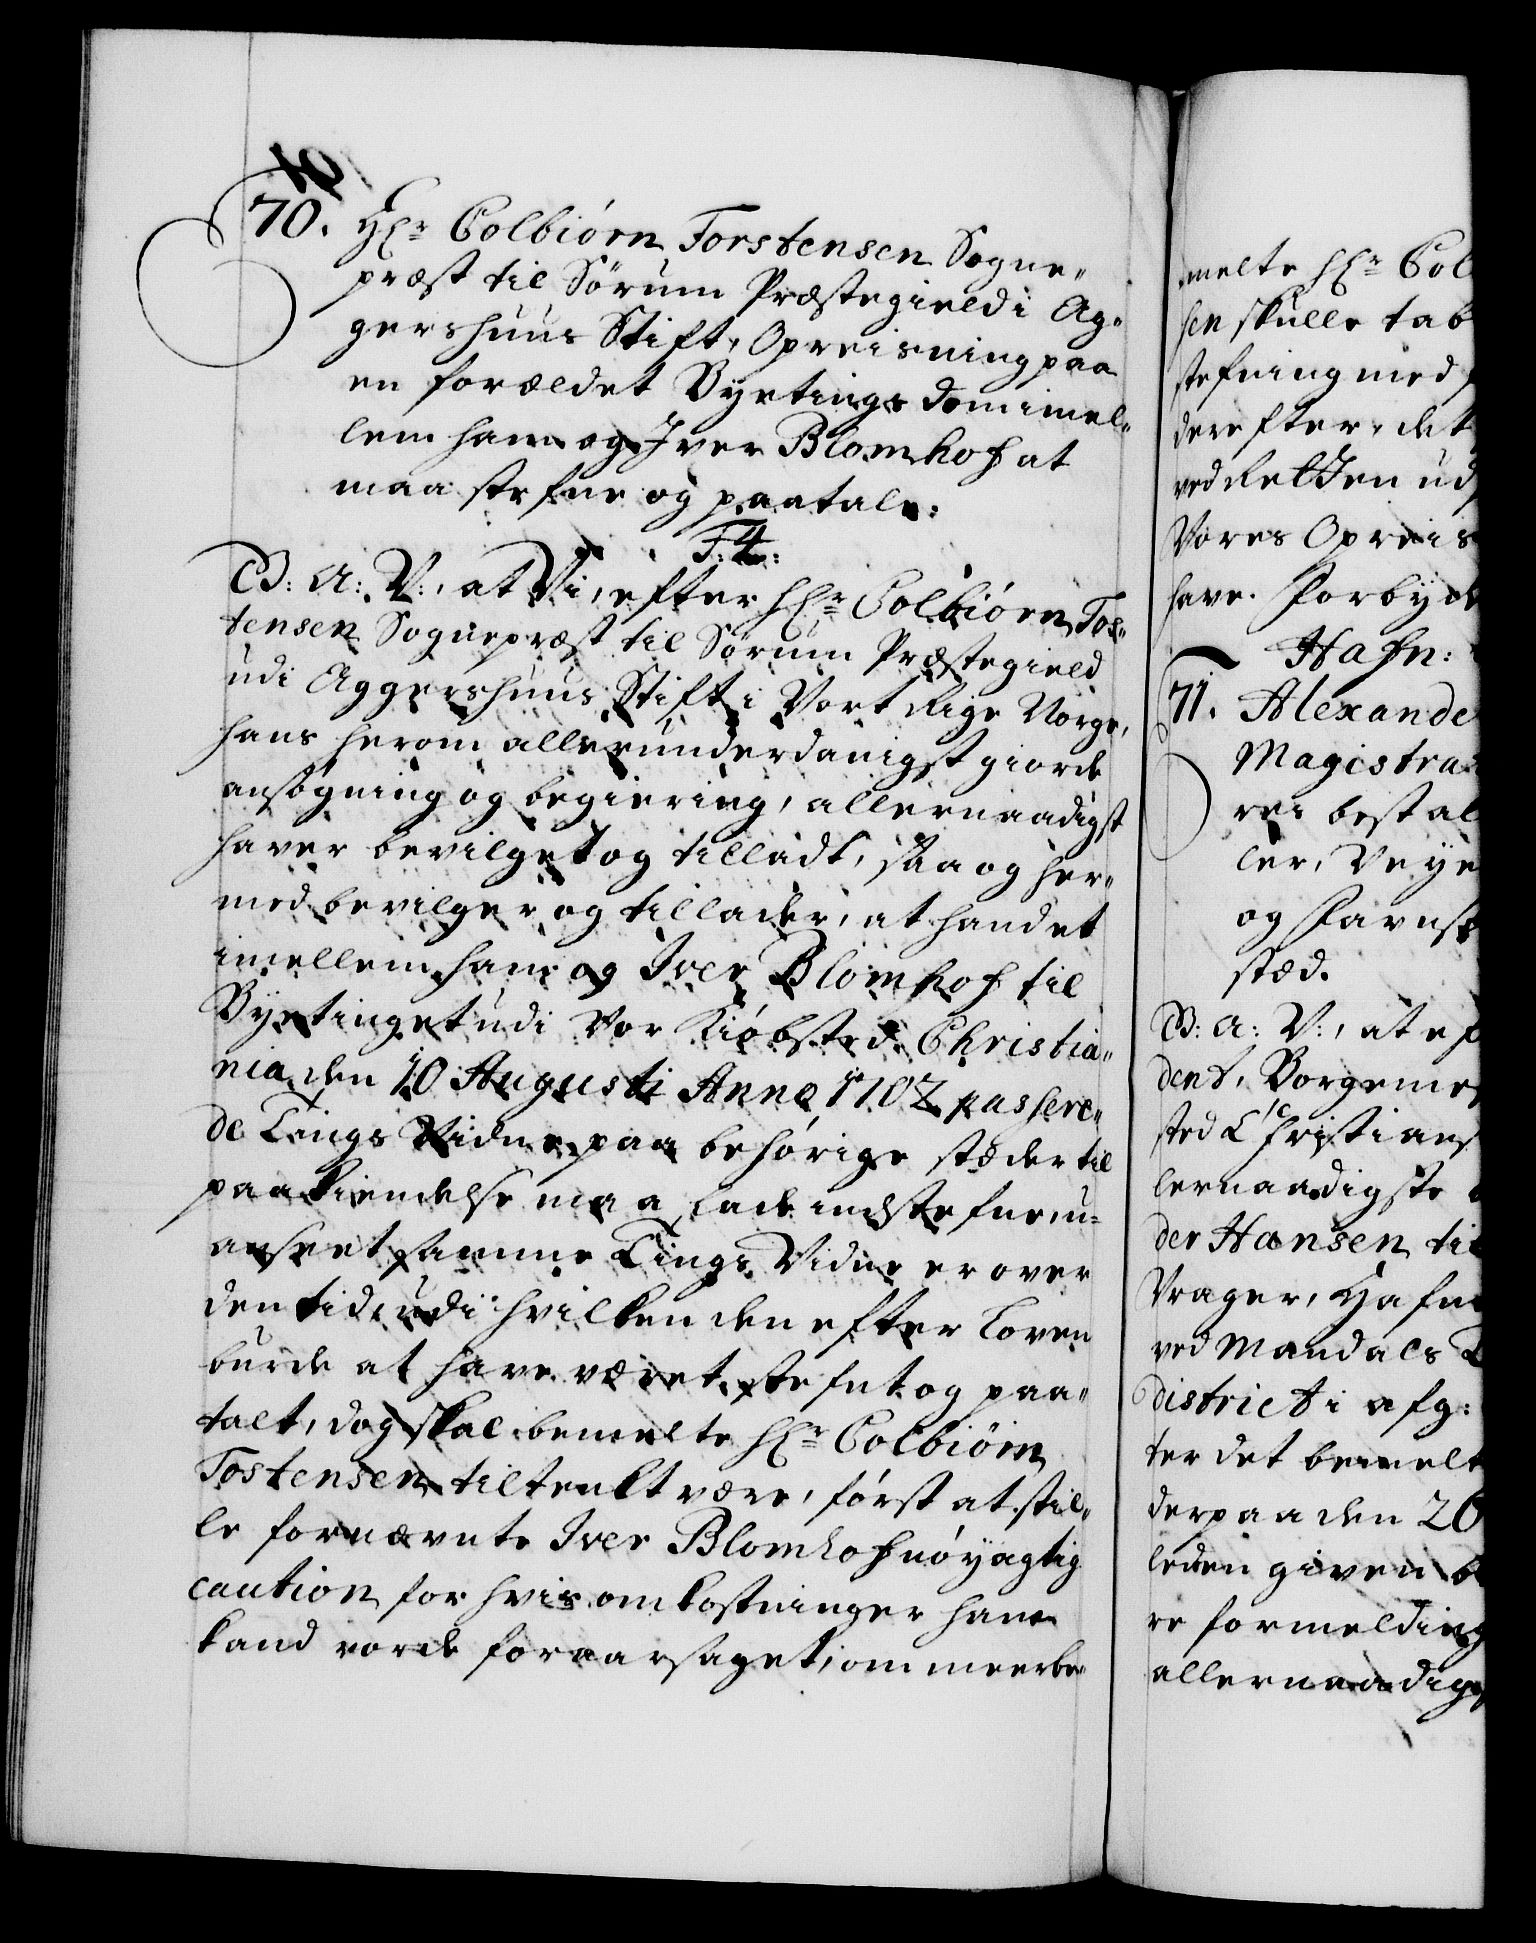 70. Hr Colbiörn Torstensen Sogne„
præst til Sörum Præstegield i Ag„
gershuus Stift, Opreisning paa
en forældet Byetings dom imel„
lem ham og Iver Blomhof at
maa stefne og paatale.
F: 4:
C5: A: V:, at Vi, efter Hr Colbiörn Tos„
tensen Sognepræst til Sörum Præstegield
udi Aggershuus Stift i Vort Rige Norge,
hans herom allerunderdanigst giorde
ansögning og begiering, allernaadigst
haver bevilget og tilladt, saa og her„
med bevilger og tillader, at hand et
imellem ham og Iver Blomhof til
Byetinget udi Vor Kiöbsted Christia„
nia den 10 Augusti Anno 1702 passere„
de Tings Vidne paa behörige stæder til
paakiendelse maa lade indstefne, u„
anseet samme Tings Vidne er over
den tid, udi hvilken den efter Loven
burde at have været stefnt og paa„
talt, dog skal bemelte Hr Colbiörn
Tostensen tiltenkt være, först at stil„
le fornævnte Iver Blomhof nöyagtig
caution for hvis omkostninger hand
kand vorde foraarsaget, om meerbe„
melte Hr Col
sen skulle tab
stefning med
derefter, det
ved Retten ud
Vores Opreis
have. Forbyde
Hafn:
71. Alexande
Magistra
res bestal
ler, Veye
og
stæd.
C5: A: V:, at ef
dent, Borgemes
sted Christians
lernaadigste
der Hansen til
Vrager,
ved Mandals
District i afg:
ter det bemelt
derpaa den 20
leden given be
re formelding
allernaadigs